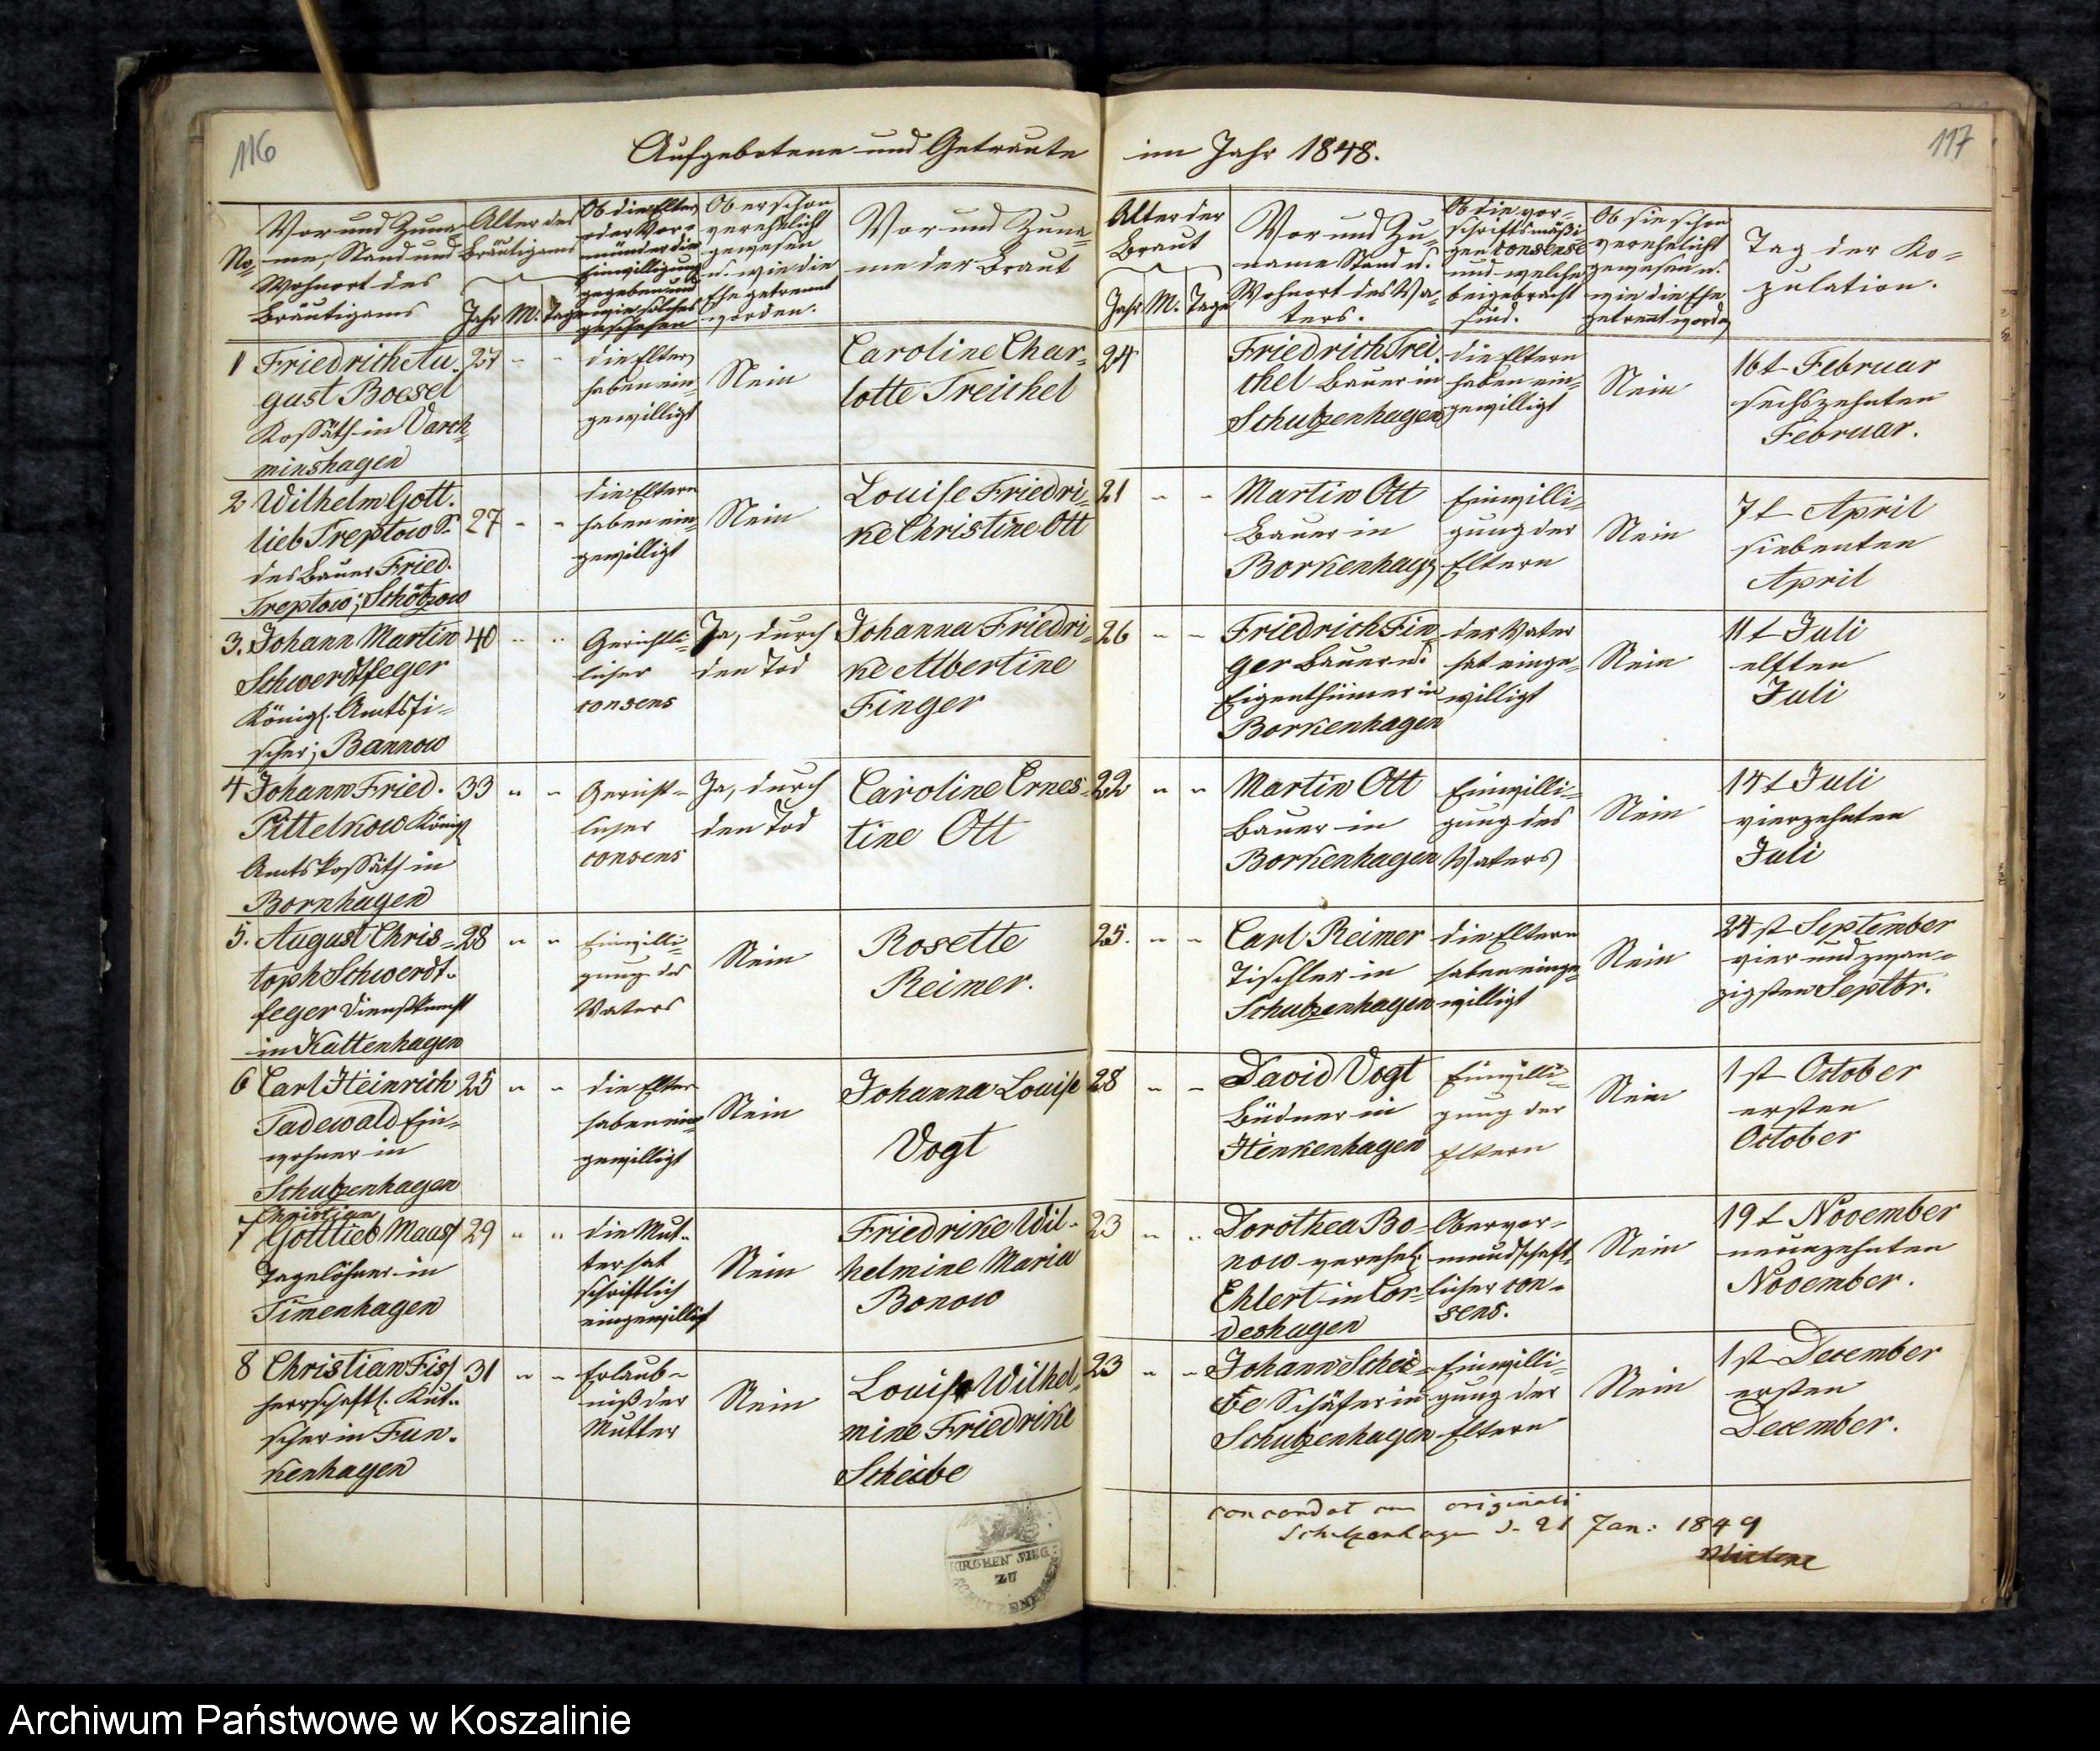 116
Aufgebotene und Getraute im Jahr 1848.
117
No.
Vor und Zuna-
me, Stand und
Wohnort des
Bräutigams
Alter des
Bräutigams
Jahr M. Tage
Ob die Eltern
oder Vor-
münder die
Einwilligung
gegeben und
wie solches
geschehen
Ob er schon
verehelicht
gewesen
u. wie die
Ehe getrennt
worden.
Vor und Zuna-
me der Braut
Alter der
Braut
Jahr M. Tage
Vor und Zu-
name Stand u.
Wohnort des Va-
ters.
Ob die vor-
schriftsmäßi-
gen Consense
und welche
beigebracht
sind.
Ob sie schon
verehelicht
gewesen u.
wie die Ehe
getrennt worden
Tag der Ko-
pulation.
1
Friedrich Au-
gust Boesel
Kossäth in Varch-
minshagen
27 - -
die Eltern
haben ein-
gewilligt
Nein
Caroline Char-
lotte Treichel
24
Friedrich Trei-
chel Bauer in
Schulzenhagen
die Eltern
haben ein-
gewilligt
Nein
16t Februar
sechszehnten
Februar.
2
Wilhelm Gott-
lieb Treptow S.
des Bauer Fried.
Treptow; Schötzow
27 - -
die Eltern
haben ein-
gewilligt
Nein
Louise Friedri-
ke Christine Ott
21 - -
Martin Ott
Bauer in
Borkenhagen
Einwilli-
gung der
Eltern
Nein
7t April
siebenten
April
3.
Johann Martin
Schwerdtfeger
Königl. Amtsfi-
scher; Bannow
40 - -
Gericht-
licher
Consens
Ja, durch
den Tod
Johanna Friedri-
ke Albertine
Finger
26 - -
Friedrich Fin-
ger Bauer u.
Eigenthümer in
Borkenhagen
der Vater
hat einge-
willigt
Nein
11t Juli
elften
Juli
4
Johann Fried.
Pittelkow Königl
Amtskossäth in
Bornhagen
33 - -
Gericht-
licher
Consens
Ja, durch
den Tod
Caroline Ernes-
tine Ott
22 - -
Martin Ott
Bauer in
Borkenhagen
Einwilli-
gung des
Vaters
Nein
14t Juli
vierzehnten
Juli
5.
August Chris-
toph Schwerdt-
feger Dienstknecht
in Kattenhagen
28 - -
Einwilli-
gung des
Vaters
Nein
Rosette
Reimer.
25. - -
Carl Reimer
Tischler in
Schulzenhagen
die Eltern
haben einge-
willigt
Nein
24st September
vier und zwan-
zigsten Septbr.
6
Carl Heinrich
Tadewald Ein-
wohner in
Schulzenhagen
25 - -
die Eltern
haben ein-
gewilligt
Nein
Johanna Louise
Vogt
28 - -
David Vogt
Büdner in
Henkenhagen
Einwilli-
gung der
Eltern
Nein
1st October
ersten
October
7
Christian
Gottlieb Maass
Tagelöhner in
Timenhagen
29 - -
die Mut-
ter hat
schriftlich
eingewilligt
Nein
Friedrike Wil-
helmine Maria
Bonow
23 - -
Dorothea Bo-
now verehel.
Ehlert in Cor-
deshagen
Obervor-
mundschaft-
licher Con-
sens.
Nein
19t November
neunzehnten
November.
8
Christian Fiss
herrschaftl. Kut-
scher in Fun-
kenhagen
31 - -
Erlaub-
niß der
Mutter
Nein
Louise Wilhel-
mine Friedrike
Scheibe
23 - -
Johann Schei-
be Schäfer in
Schulzenhagen
Einwilli-
gung der
Eltern
Nein
1st December
ersten
December.
concordat cum originali
Schulzenhagen d. 21 Jan: 1849
KIRCHEN SIEG:
ZU
Archiwum Państwowe w Koszalinie